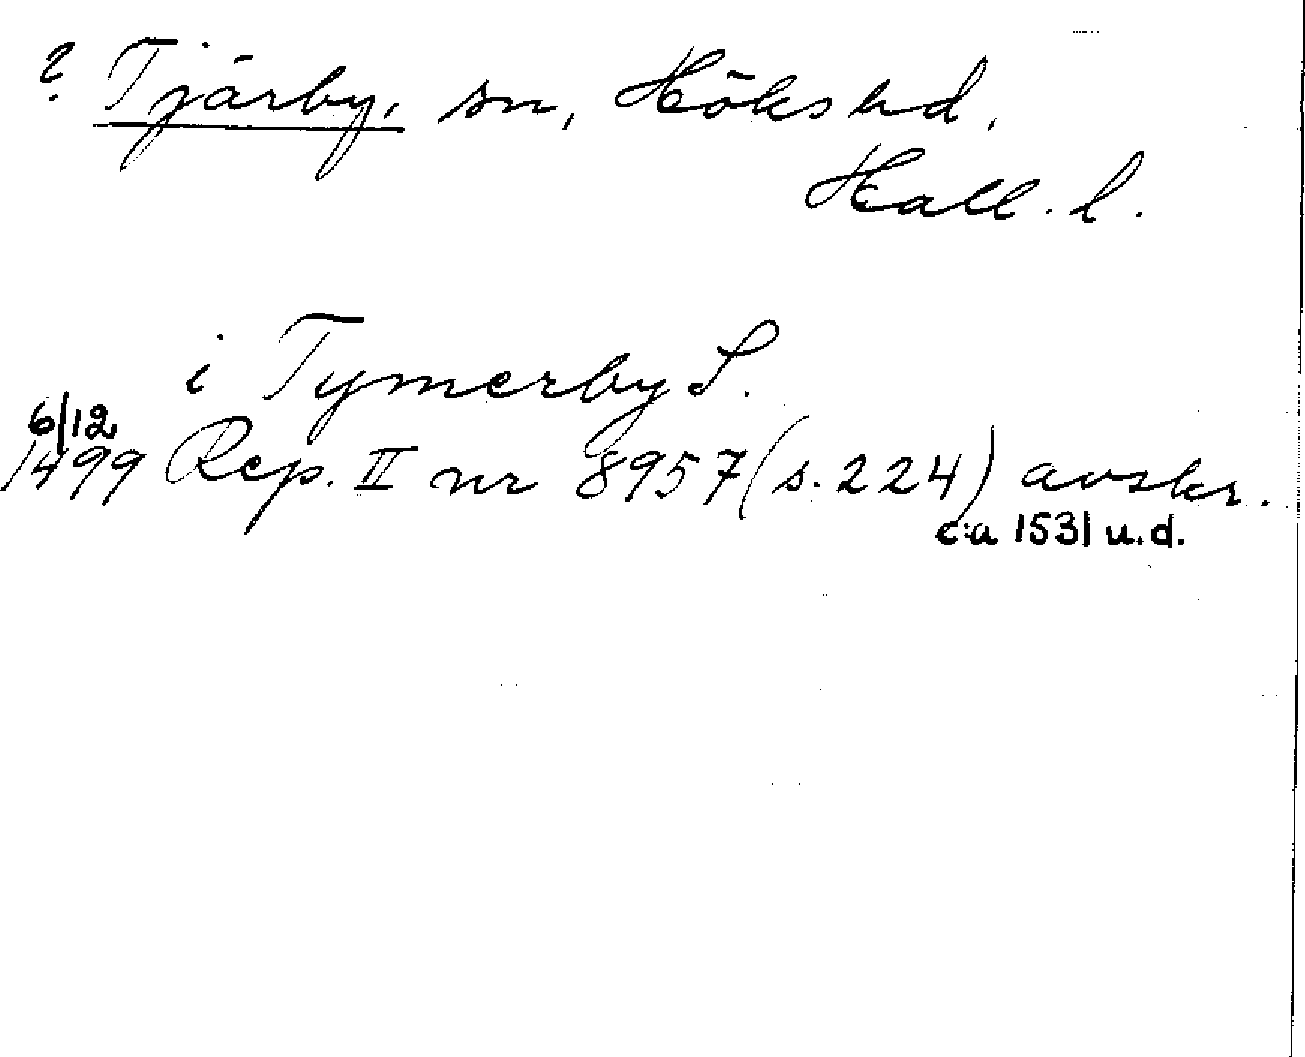 ? Tjärby, sn, Höks hd,
Hall. l.
i Tymerby S.
6/12
1499 Rep. II nr 8957 (s. 224) avskr.
c:a 1531 u.d.